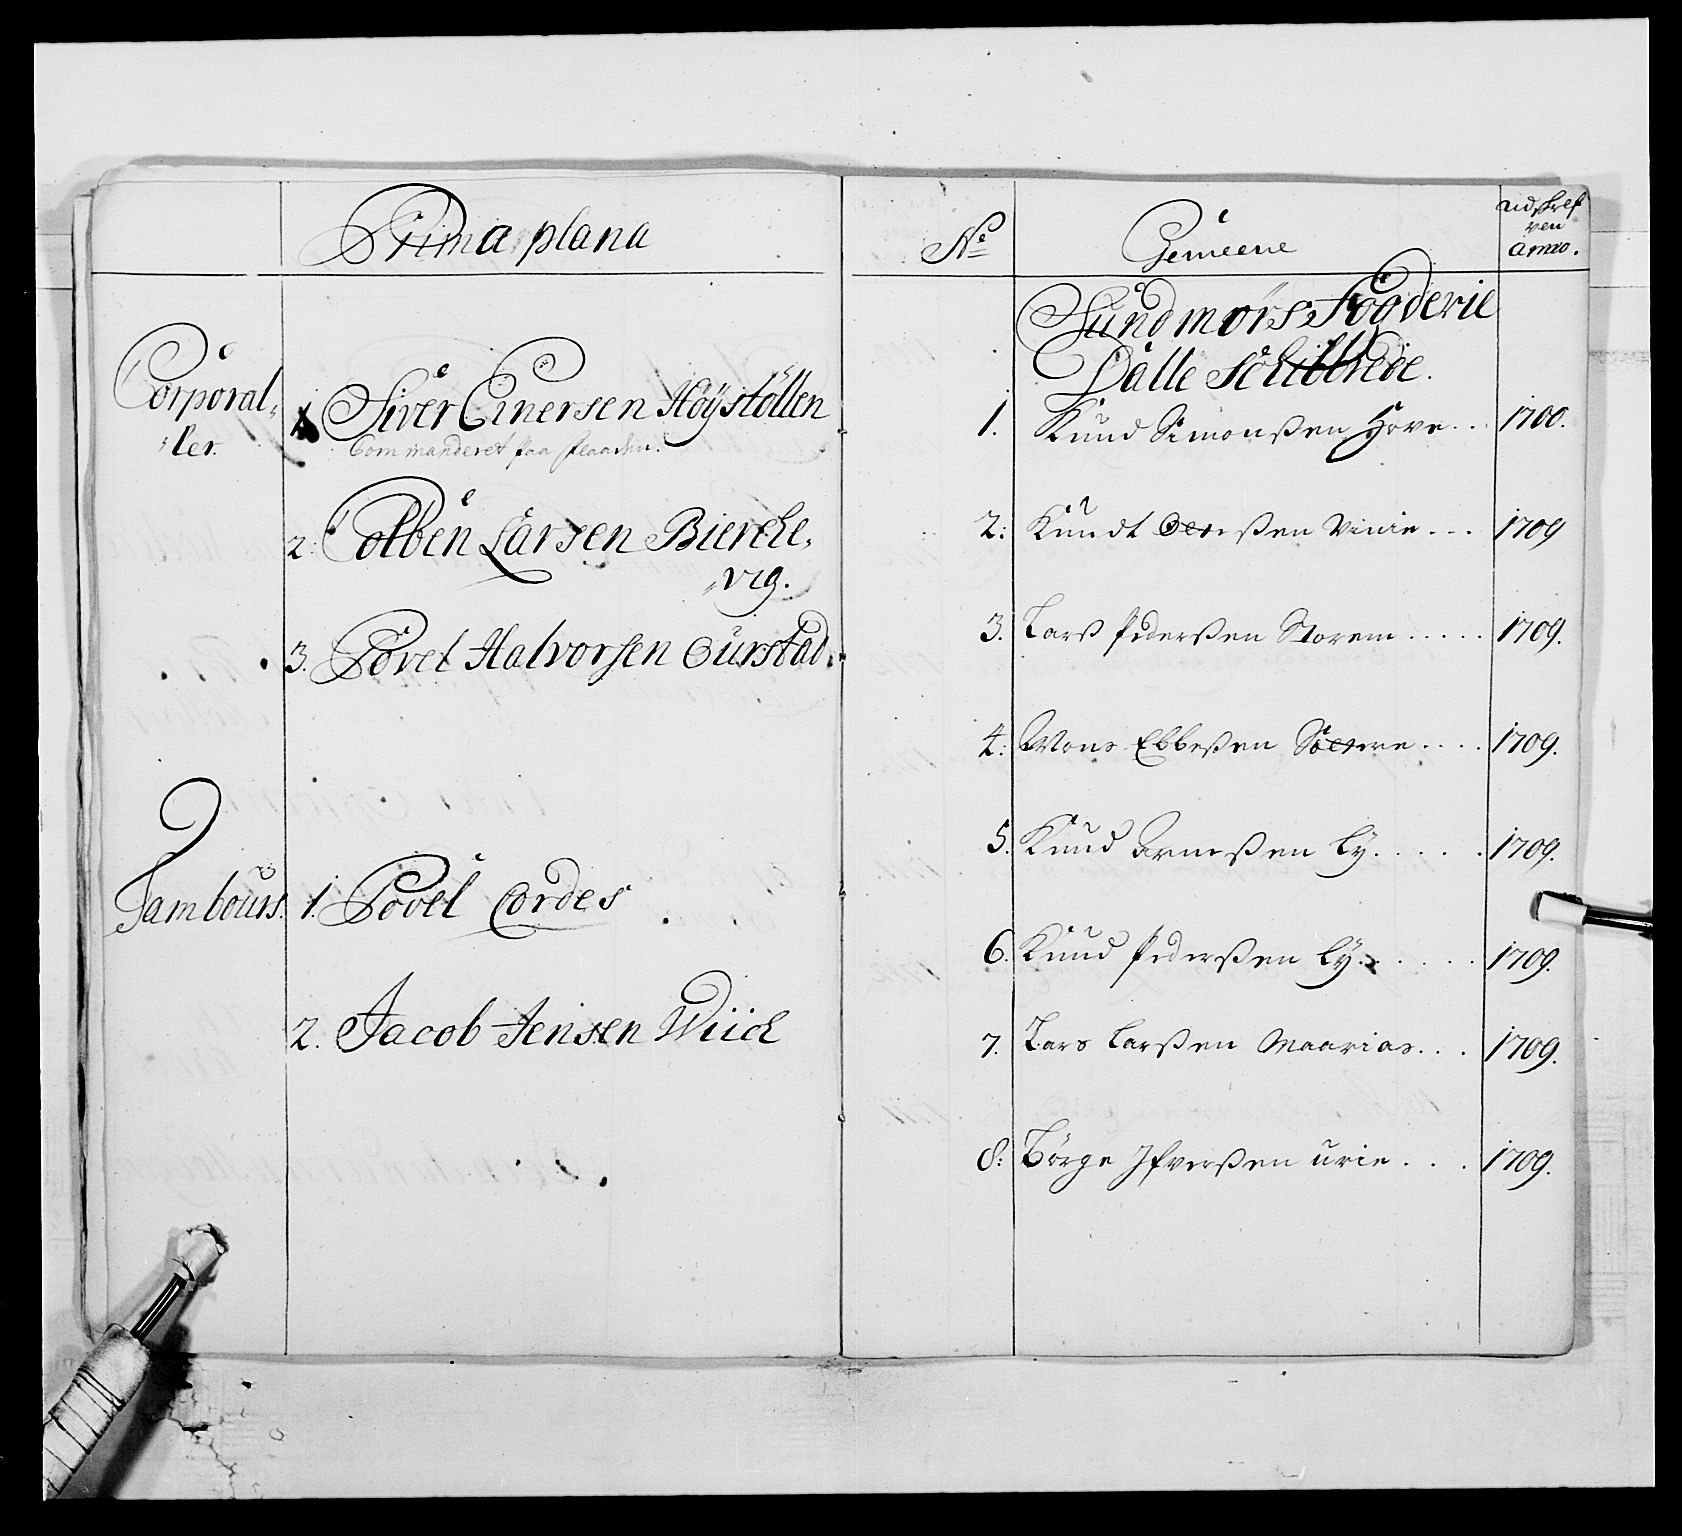 Prima plana
Corporal-
ler.
1. Siver Einersen Höÿstöllen
Commanderet paa flaaden.
2. Colben Larsen Bierche-
vig.
3. Povel Halvorsen Ourstad.
Tambours. 1. Povel Cordes
2. Jacob Jensen Wiich
No Gemeene udskref
ven
anno.
Sundmørs Fogderie
Dalle Schibbrede.
1. Knud Simonßen Hove... 1700.
2: Knudt ßen Vinie... 1709
3. Larß Pederßen Storem..... 1709.
4: Mons Ebbeßen .... 1709.
5. Knud Arneßen Ly..... 1709.
6. Knud Pederßen Ly...... 1709.
7. Lars Larßen Maarias... 1709.
8: Börge Ifverßen urie... 1709.